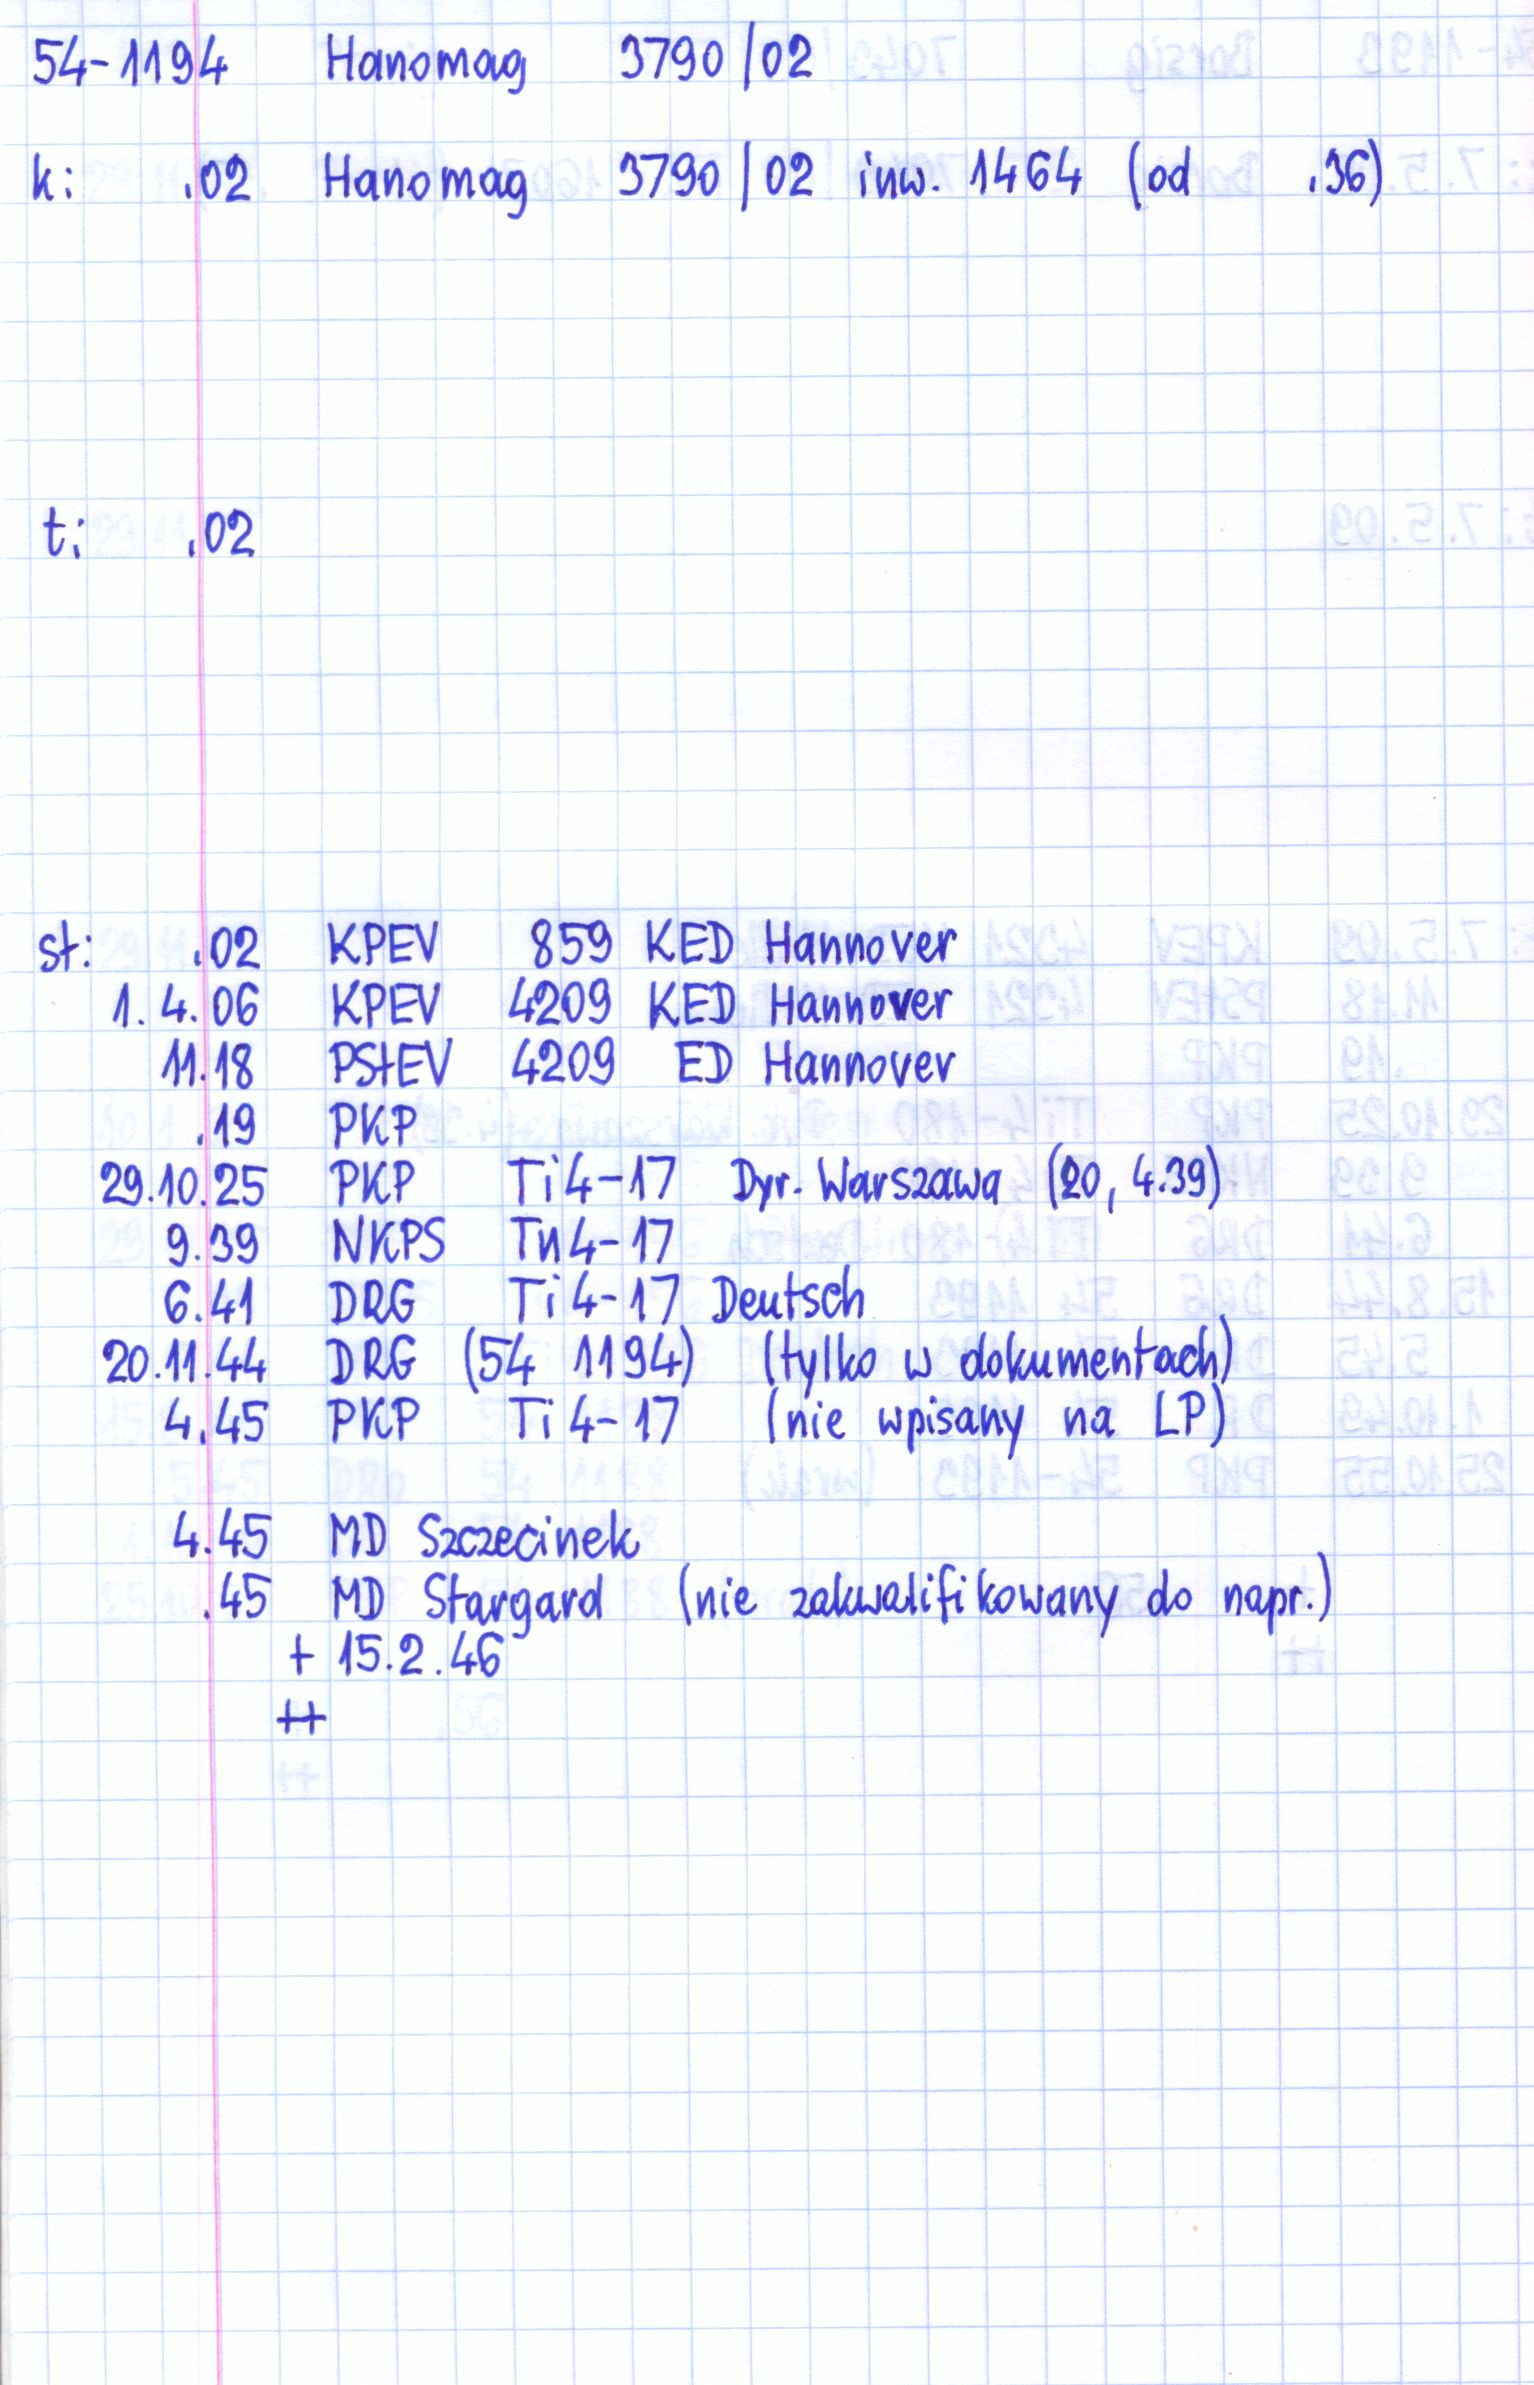 54-1194 Hanomag 3790/02
k: .02 Hanomag 3790/02 inw. 1464 (od .36)
t: .02
st: .02 KPEV 859 KED Hannover
1.4.06 KPEV 4209 KED Hannover
11.18 PStEV 4209 ED Hannover
.19 PKP
29.10.25 PKP Ti4-17 Dyr. Warszawa (20, 4.39)
9.39 NKPS Tи4-17
6.41 DRG Ti4-17 Deutsch
20.11.44 DRG (54 1194) (tylko w dokumentach)
4.45 PKP Ti4-17 (nie wpisany na LP)
4.45 MD Szczecinek
.45 MD Stargard (nie zakwalifikowany do napr.)
+ 15.2.46
++